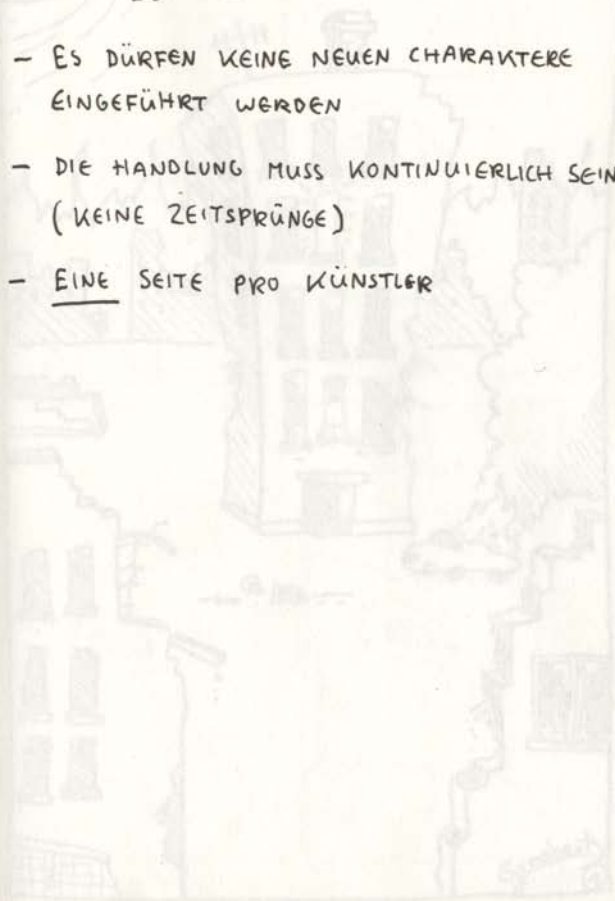 - ES DÜRFEN KEINE NEUEN CHARAKTERE
EINGEFÜHRT WERDEN
- DIE HANDLUNG MUSS KONTINUIERLICH SEIN
(KEINE ZEITSPRÜNGE)
- EINE SEITE PRO KÜNSTLER